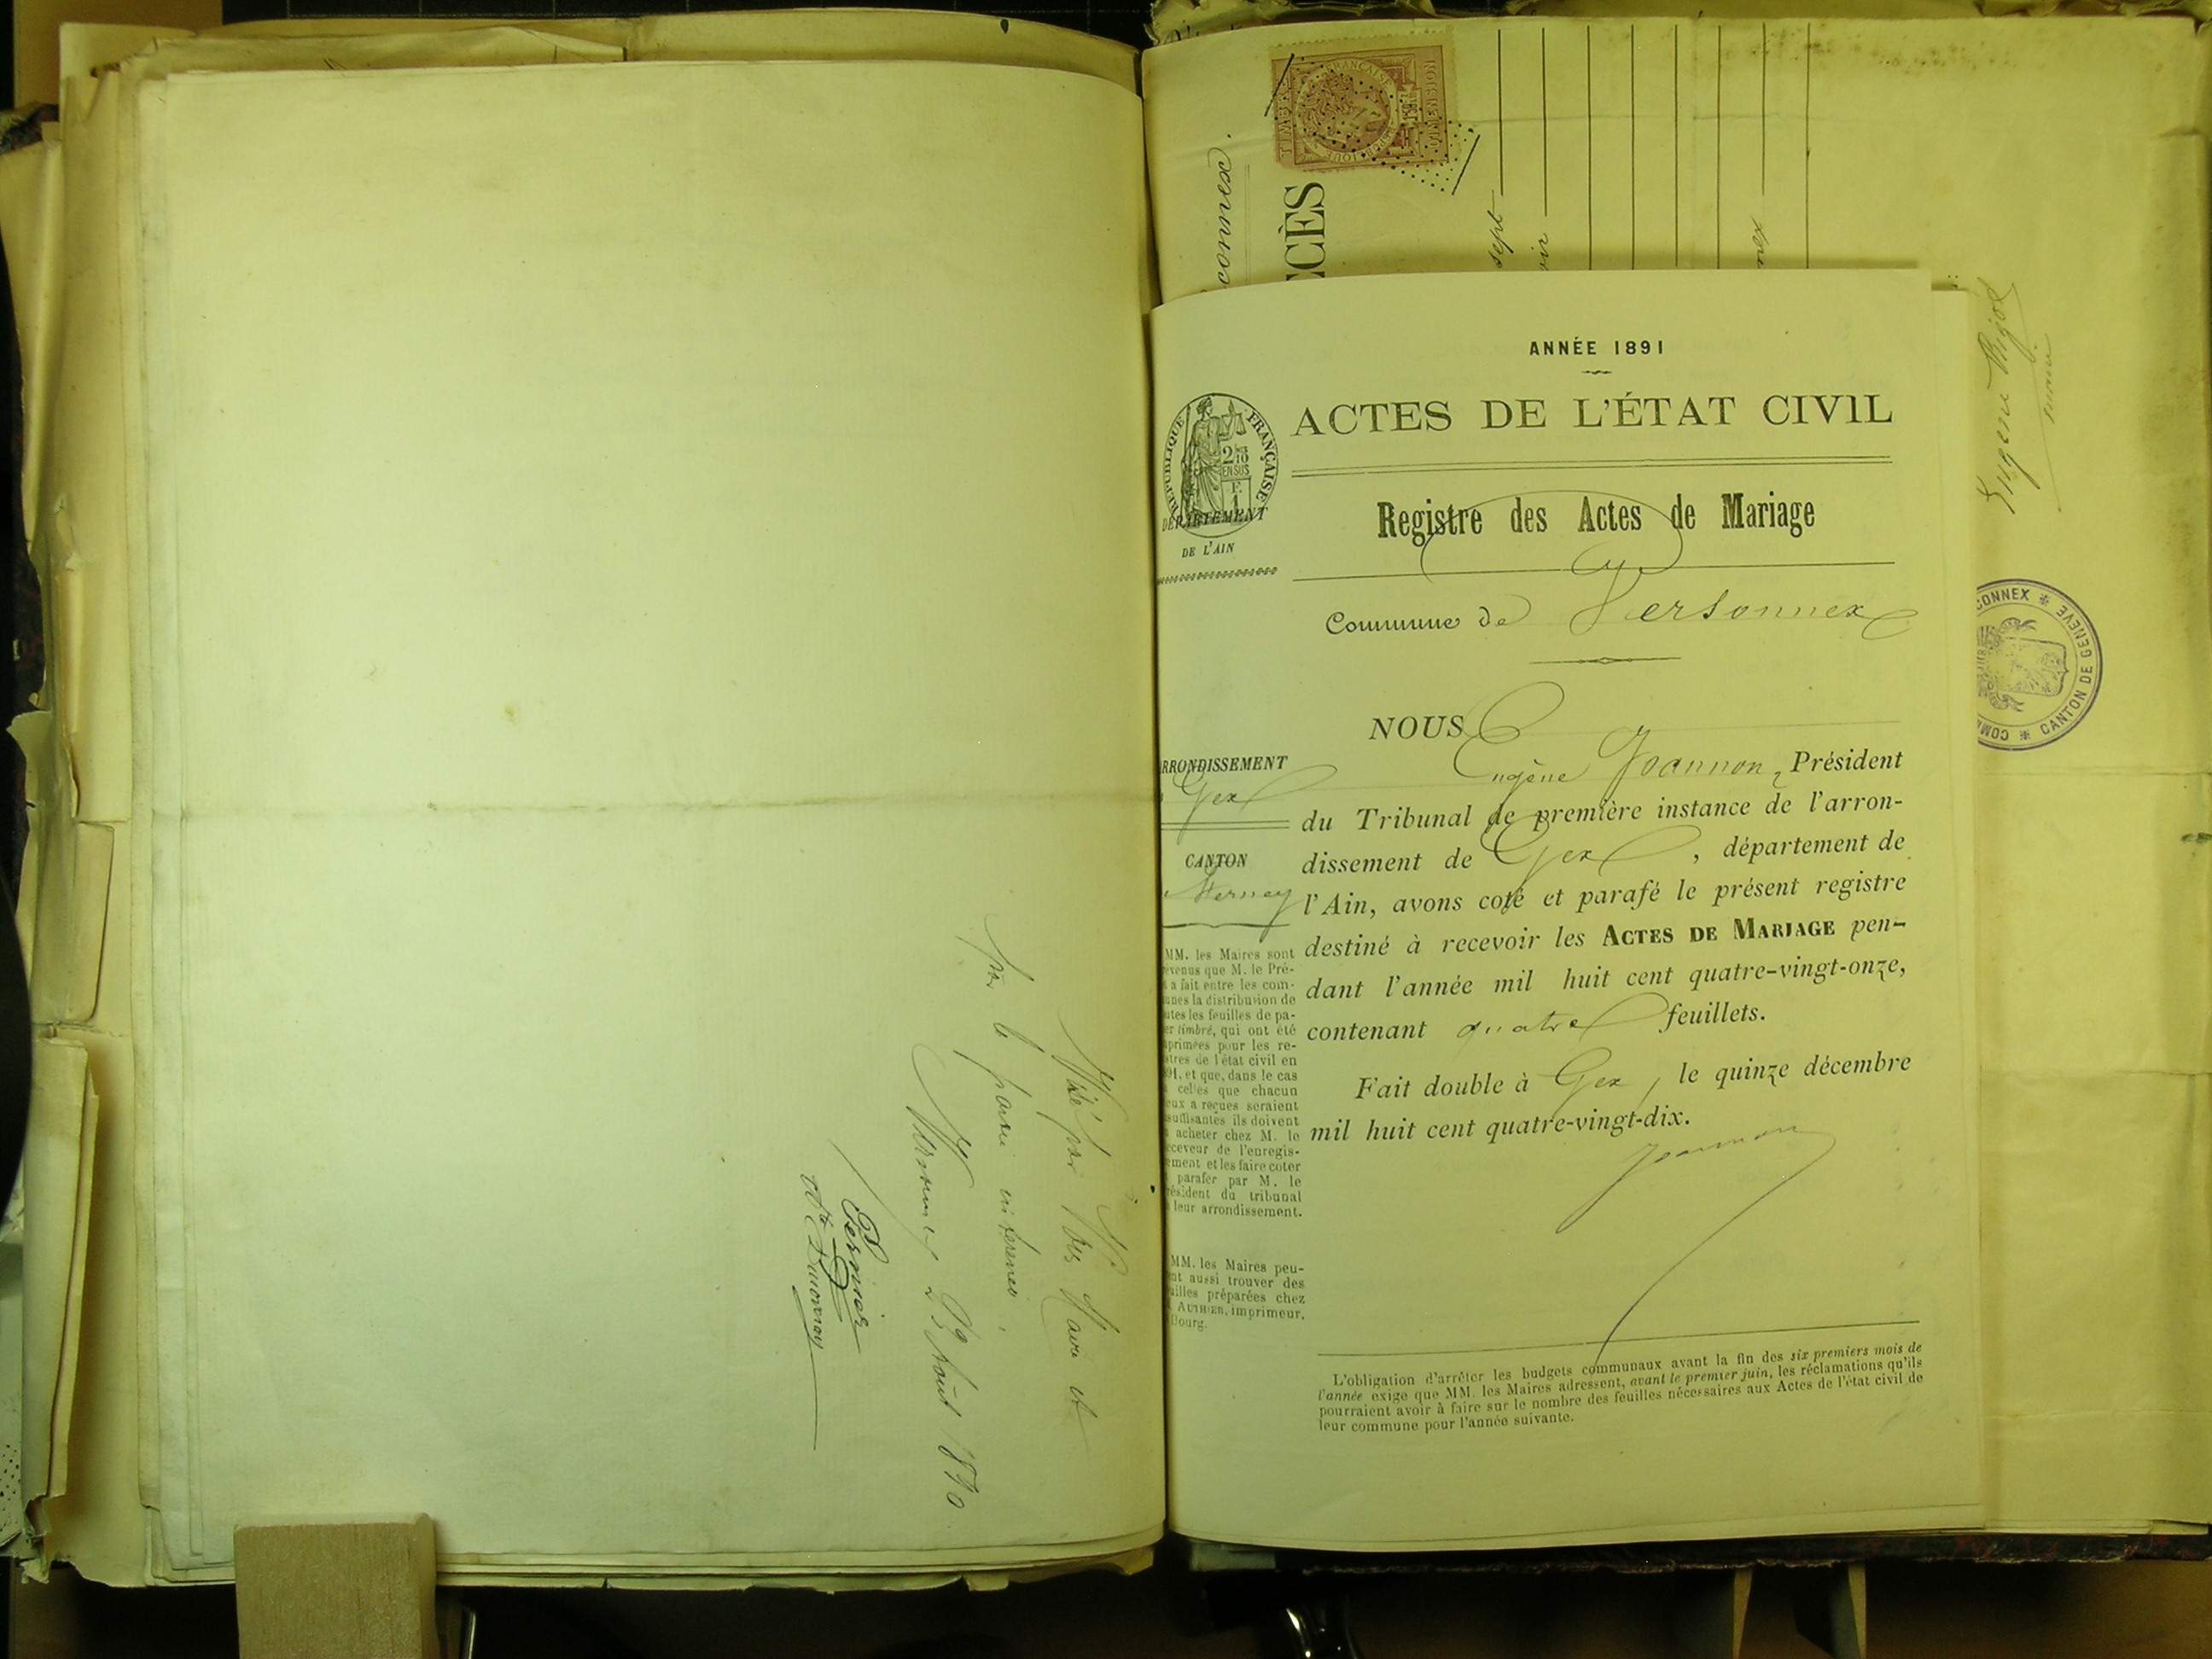 Visé par Nous Maire et
par la partie intéressée,
Versonnex 23 Août 1890
Pernier
connex.
CÈS
TIMBRE
FRANÇAISE
DIMENSION
sept
oir
nex
ANNÉE 1891
ACTES DE L'ÉTAT CIVIL
RÉPUBLIQUE FRANÇAISE
DÉPARTEMENT
DE L'AIN
Registre des Actes de Mariage
Commune de Versonnex
NOUS
Eugène Joannon, Président
du Tribunal de première instance de l'arron-
dissement de Gex, département de
l'Ain, avons coté et parafé le présent registre
destiné à recevoir les ACTES DE MARIAGE pen-
dant l'année mil huit cent quatre-vingt-onze,
contenant quatre feuillets.
Fait double à Gex, le quinze décembre
mil huit cent quatre-vingt-dix.
Joannon
RRONDISSEMENT
Gex
CANTON
Ferney
MM. les Maires sont
évenus que M. le Pré-
a fait entre les com-
unes la distribution de
utes les feuilles de pa-
er timbré, qui ont été
primées pour les re-
stres de l'état civil en
91, et que, dans le cas
celles que chacun
eux a reçues seraient
suffisantes ils doivent
acheter chez M. le
eceveur de l'enregis-
ement et les faire coter
parafer par M. le
résident du tribunal
leur arrondissement.
MM. les Maires peu-
nt aussi trouver des
uilles préparées chez
AUTHIER, imprimeur,
Bourg.
L'obligation d'arrêter les budgets communaux avant la fin des six premiers mois de
l'année exige que MM. les Maires adressent, avant le premier juin, les réclamations qu'ils
pourraient avoir à faire sur le nombre des feuilles nécessaires aux Actes de l'état civil de
leur commune pour l'année suivante.
Eugène Rigot
mairie
CONNEX * CANTON DE GENÈVE * COM